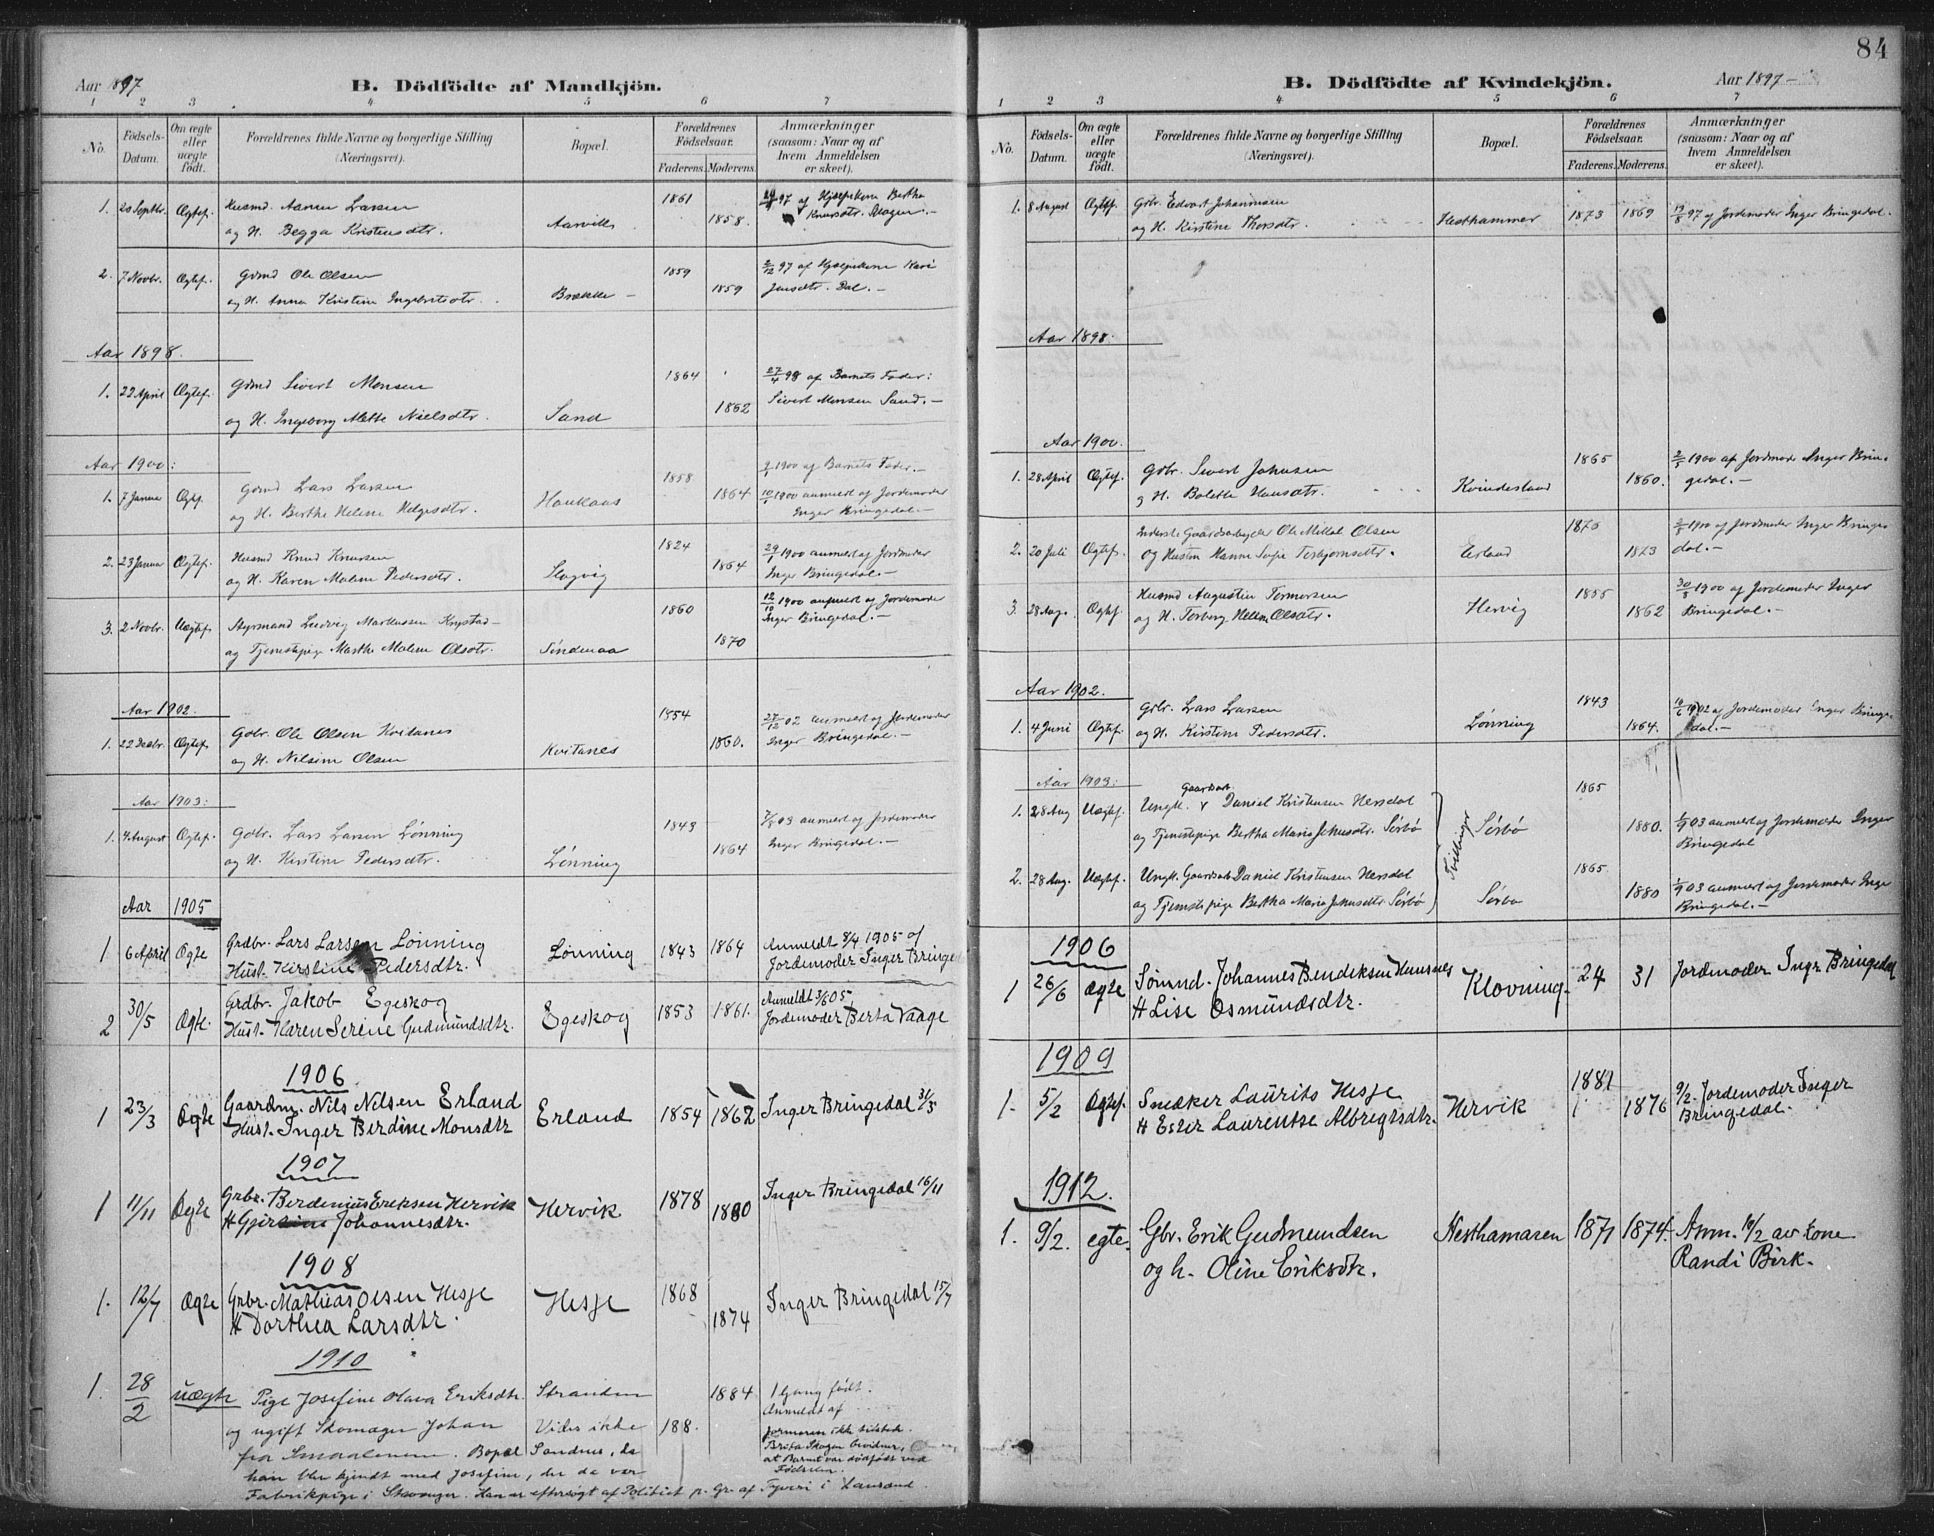 Aar 1897
B. Dödfödte af Mandkjön.
1 2 3 4 5 6 7
No.
Födsels-Datum.
Om ægte eller uægte födt.
Forældrenes fulde Navne og borgerlige Stilling (Næringsvei).
Bopæl.
Forældrenes Födselsaar.
Faderens. Moderens.
Anmærkninger (saasom: Naar og af hvem Anmeldelsen er skeet).
1. 20 Septbr. Ægtef. Husmd. Larsen 1861 29/9 97 af Hjælpekone Bertha
og H. Begga Kristensdtr. Aarvik 1858. Knutsdtr.
2. 7 Novbr. Ægtef. Grmd Ole Olsen 1859 2/12 97 af Hjælpekone Kari
og H. Anna Kristine Brække 1859 Jensdtr. Dal.
Aar 1898.
1. 22 April Ægtef. Grmd Sivert Monsen 1864 27/4 98 af Barnets Fader:
og H. Ingeborg Mette Nielsdtr. Sand 1862 Sivert Monsen Sand.
Aar 1900:
1. 7 Januar Ægtef. Grmd Lars Larsen 1858 1900 af Barnets Fader.
og H. Berthe Helene Helgesdtr. Haukaas 1864 1900 anmeldt af Jordemoder
Inger Bringedal.
2. 23 Januar Ægtef. Husmd Knud Knutsen 1824 29/1 1900 anmeldt af Jordemoder
og H. Karen Malene Pedersdtr. Slogvig 1864 Inger Bringedal.
3. 2 Novbr. Uægtef. Styrmand Ludvig Markussen 1860 1900 anmeldt af Jordemoder
og Tjenestepige Marthe Malene Olsdtr. Sindenaa 1870 Inger Bringedal.
Aar 1902.
1. 22 Decbr. Ægtef. Gdbr. Ole Olsen Kvitanes 1854 27/12 02 anmeldt af Jordemoder
og H. Nilsine Olsen Kvitanes 1860. Inger Bringedal.
Aar 1903:
1. August Ægtef. Gdbr. Lars Larsen Lönning 1843 03 anmeldt af Jordemoder
og H. Kirstine Pedersdtr. Lönning 1864 Inger Bringedal.
Aar 1905
1 6 April Ægte Grdbr. Lars Larsen Lönning Lönning 1843 1864 Anmeldt 8/4 1905 af
Hust. Kirstine Pedersdtr. Jordemoder Inger Bringe
2 30/5 Ægte. Grdbr. Jakob Egeskog Egeskog 1853 1861. Anmeldt 3/6 05
Hust. Karen Serene Gudmundsdtr. Jordemoder Berta Vaage
1906
1 23/3 Ægte Gaardm. Nils Nilsen Erland Erland 1854 1862 Inger Bringedal 31/3
Hust. Inger Berdine Monsdtr
1907
1 11/11 Ægte Grbr. Berdenius Eriksen Hervik Hervik 1878 1880 Inger Bringedal 16/11
H Johannesdtr.
1908
1. 12/7 Ægte Grbr. Mathias Olsen Hesje Hesje 1868 Inger Bringedal 15/7
H Dorthea Larsdtr. 1874
1910
1. 28/2 uægte Pige Josefine Olava Eriksdtr. Stranden 1884 1 Gang födt.
og ugift Skomager Johan Vides ikke 188. Anmeldt af
fra Smaalenene. Bopæl Sandnes, da Jormoren ikke tilstede.
han blev kjendt med Josefine, der da var
at Barnet var dödfödt ved Födselen.
Fabrikpige i Stavanger. Han er eftersögt af Politiet p. Gr. af Tyveri i

84
B. Dödfödte af Kvindekjön.
Aar 1897
1 2 3 4 5 6 7
No.
Födsels-Datum.
Om ægte eller uægte födt.
Forældrenes fulde Navne og borgerlige Stilling (Næringsvei).
Bopæl.
Forældrenes Födselsaar.
Faderens. Moderens.
Anmærkninger (saasom: Naar og af hvem Anmeldelsen er skeet).
1. 8 August Ægtef. Grbr. Edvart Johannesen
og H. Kirstine Thorsdtr. Hesthammer 1873 1869 19/8 97 af Jordemoder Inger Bringedal.
Aar 1898.
Aar 1900.
1. 28 April Ægtef. Gdbr. Sivert Johnsen 1865 2/5 1900 af Jordmoder Inger Brin-
og H. Bolette Hansdtr. Kvindesland 1860. gedal.
2. 20 Juli Ægtef. Inderst Gaardsarbeyder Ole Mikkel Olsen 1875 1900 af Jordmoder Inger Bringe-
og Hustru Hanne Sofie Torbjørnsdtr. Erland 1873 dal.
3. 28 Aug. Ægtef. Husmd Augustin Tormorsen 1855 30/8 1900 af Jordemoder Inger
og H. Torborg Helene Olsdtr. Hervig 1862 Bringedal.
Aar 1902.
1. 4 Juni Ægtef. Grbr. Lars Larsen 1843 1902 af Jordemoder Inger Bringe-
og H. Kirstine Pedersdtr. Lönning 1864. dal.
Aar 1903:
1. 28 Aug Uægtef. Ungk. Gaardsarb. Daniel Kristensen Hersdal 1865
og Tjenestepige Bertha Maria Johnsdtr. Sörbö Sörbö 1880. 1/9 03 anmeldt af Jordemoder Inger
Bringedal
Tvillinger
2. 28 Aug. Uægtef. Ungk. Gaardsarb Daniel Kristensen Hersdal 1865.
og Tjenestepige Bertha Maria Johnsdtr Sörbö Sörbö 1880 1/9 03 anmeldt af Jordemoder Inger
Bringedal.
1906
1 26/6 Ægte Sömnd. Johannes Bendiksen Klovning. 24 31 Jordmoder Inger Bringedal
H Lise Osmundsdtr.
1909
1. 5/2 Ægtef. Snedker Laurits Hesje Hervik 1881 1876 9/2. Jordemoder Inger
H Ester Laurentse Albregtsdtr. Bringedal.
1912.
1. 9/2. egte. Gbr. Erik Gudmundsen Hesthamaren 1871 1874. Anm. 10/2 av kone
og h. Oline Eriksdtr. Randi Birk.